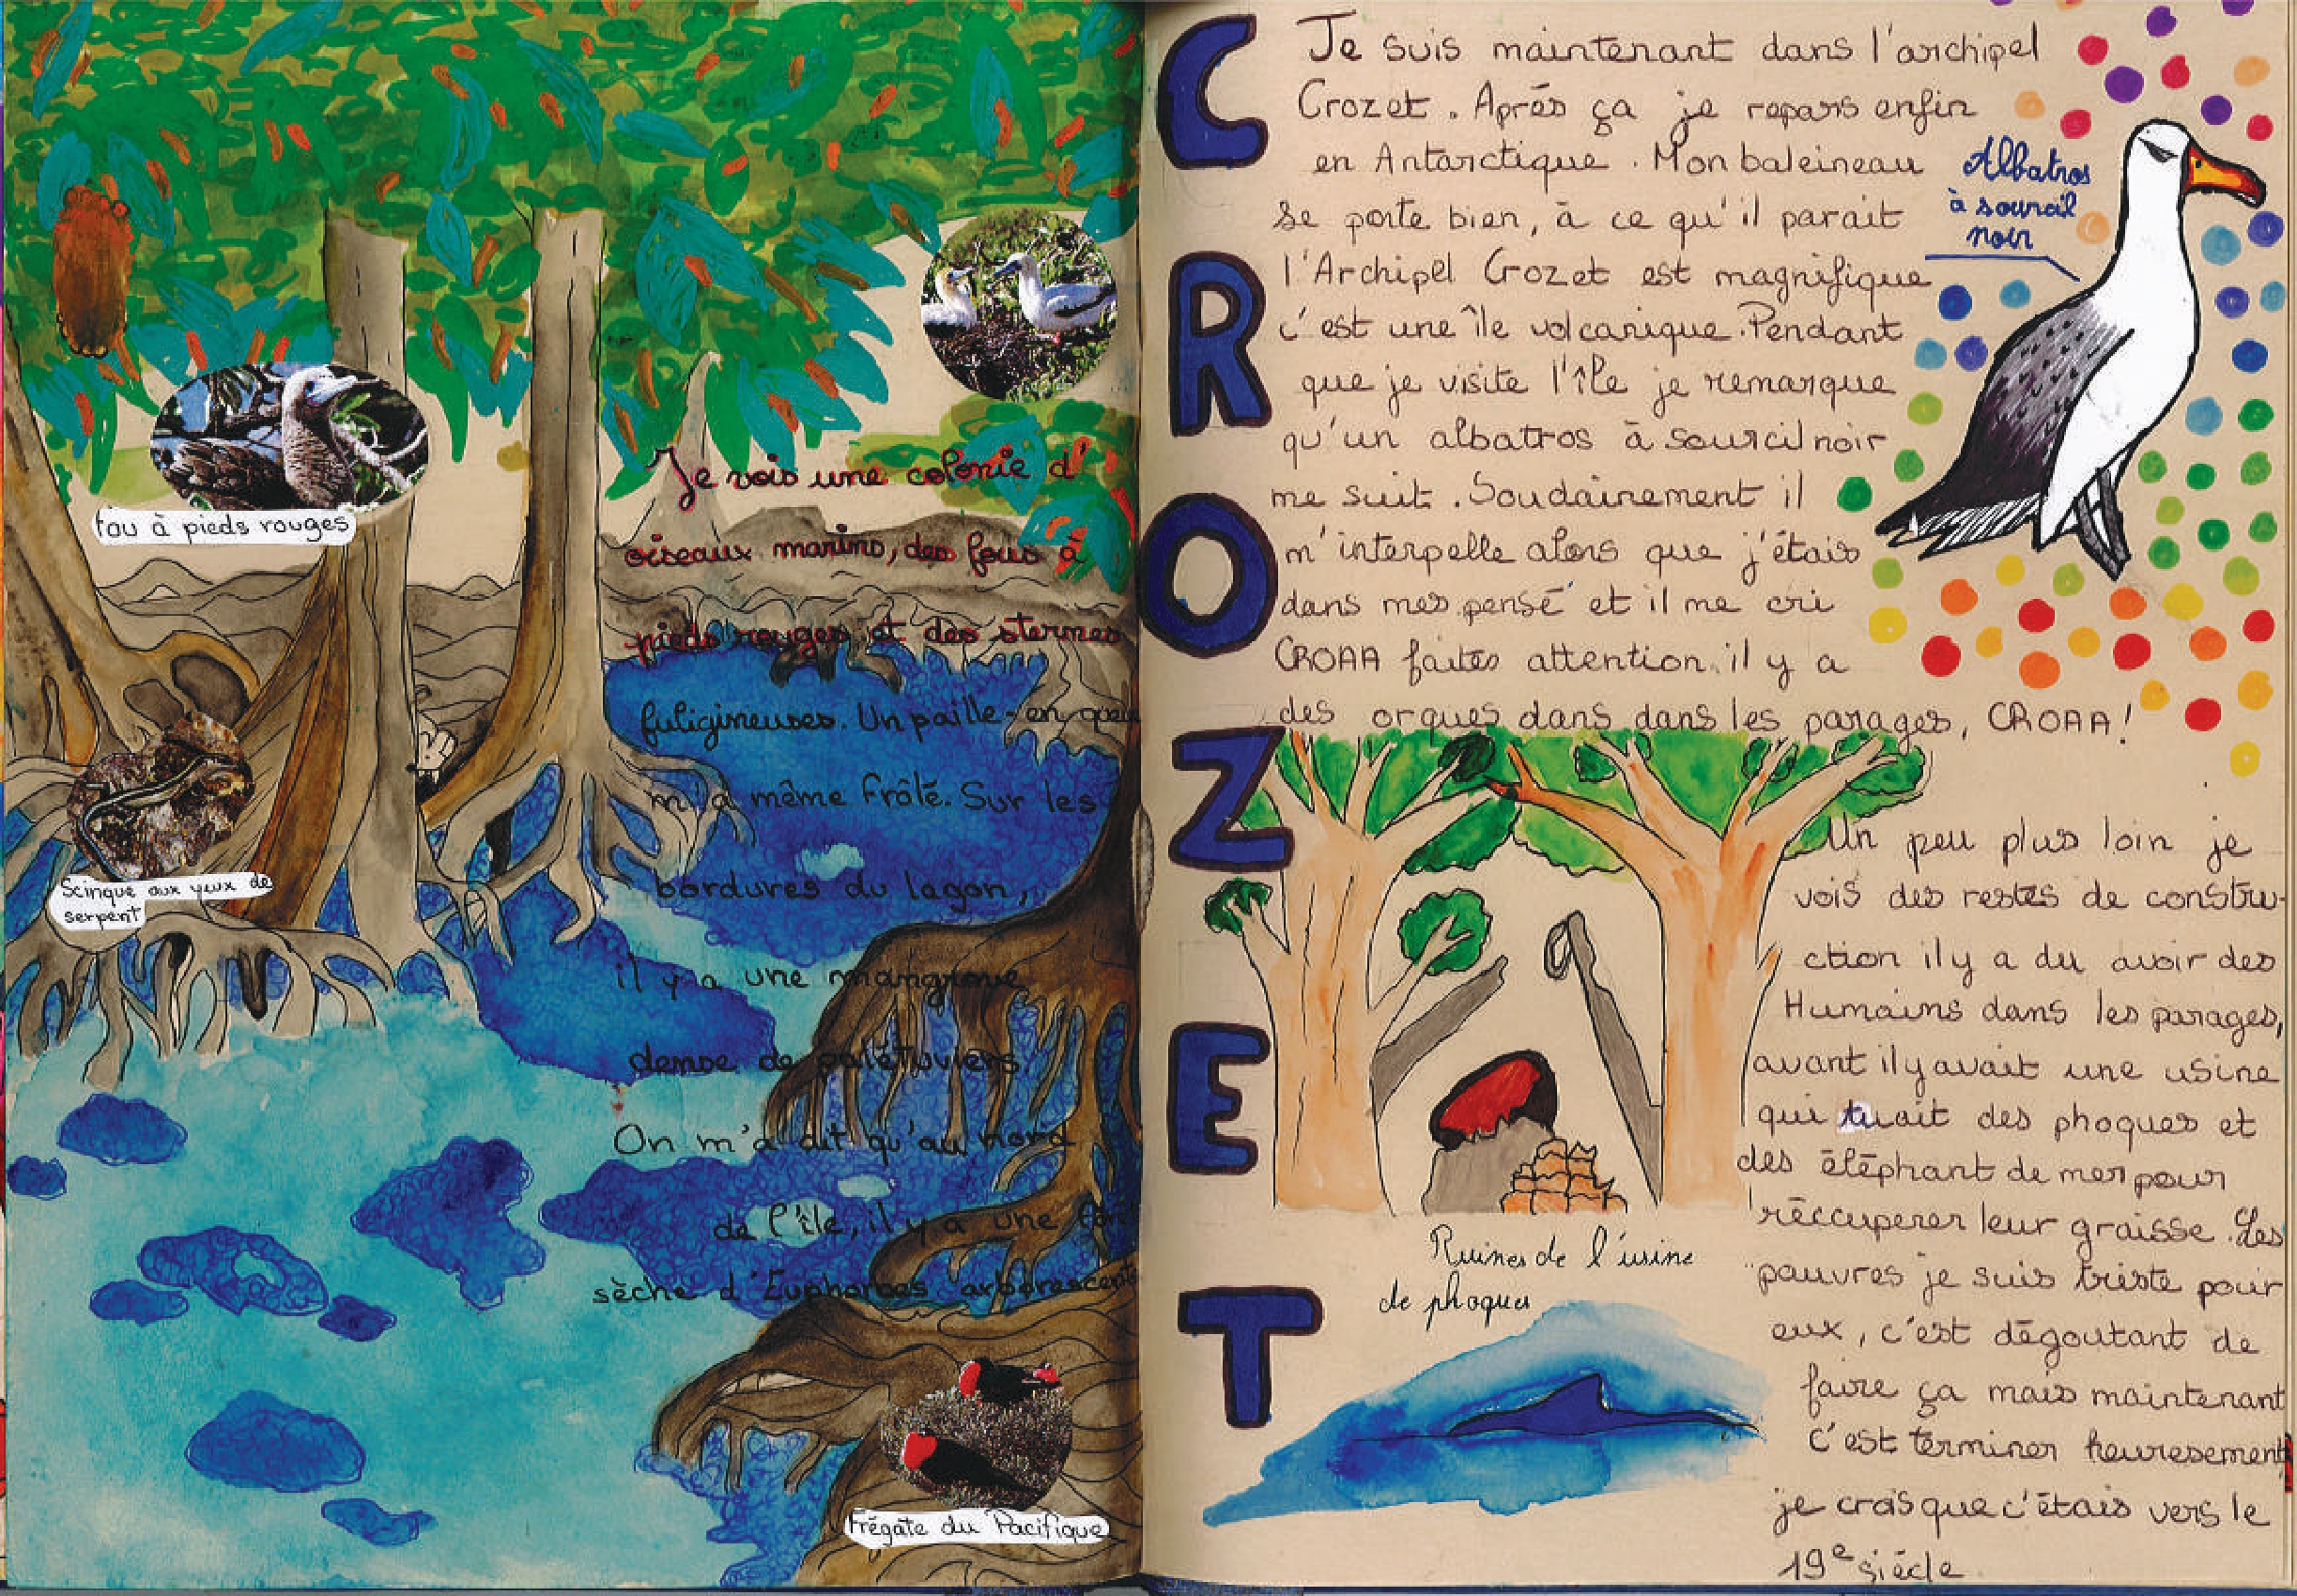 Fou à pieds rouges
Scinque aux yeux de
serpent
Je vois une colonie d'
oiseaux marins, des fous à
pieds rouges et des sternes
fuligineuses. Un paille-en-queue
m'a même frôlé. Sur les
bordures du lagon,
il y a une mangrove
dense de palétuviers.
On m'a dit qu'au nord
de l'île, il y a une
sèche d'Euphorbes arborescente
Frégate du Pacifique
CROZET
Je suis maintenant dans l'archipel
Crozet. Après ça je repars enfin
en Antarctique. Mon baleineau
se porte bien, à ce qu'il parait
l'Archipel Crozet est magnifique
c'est une île volcanique. Pendant
que je visite l'île je remarque
qu'un albatros à sourcil noir
me suit. Soudainement il
m'interpelle alors que j'étais
dans mes pensé et il me cri
CROAA faites attention il y a
des orques dans dans les parages, CROAA!
Albatros
à sourcil
noir
Un peu plus loin je
vois des restes de constru-
ction il y a du avoir des
Humains dans les parages,
avant il y avait une usine
qui tuait des phoques et
des éléphant de mer pour
réccuperer leur graisse. Les
pauvres je suis triste pour
eux, c'est dégoutant de
faire ça mais maintenant
c'est terminer heuresement
je crois que c'étais vers le
19e siécle
Ruines de l'usine
de phoques